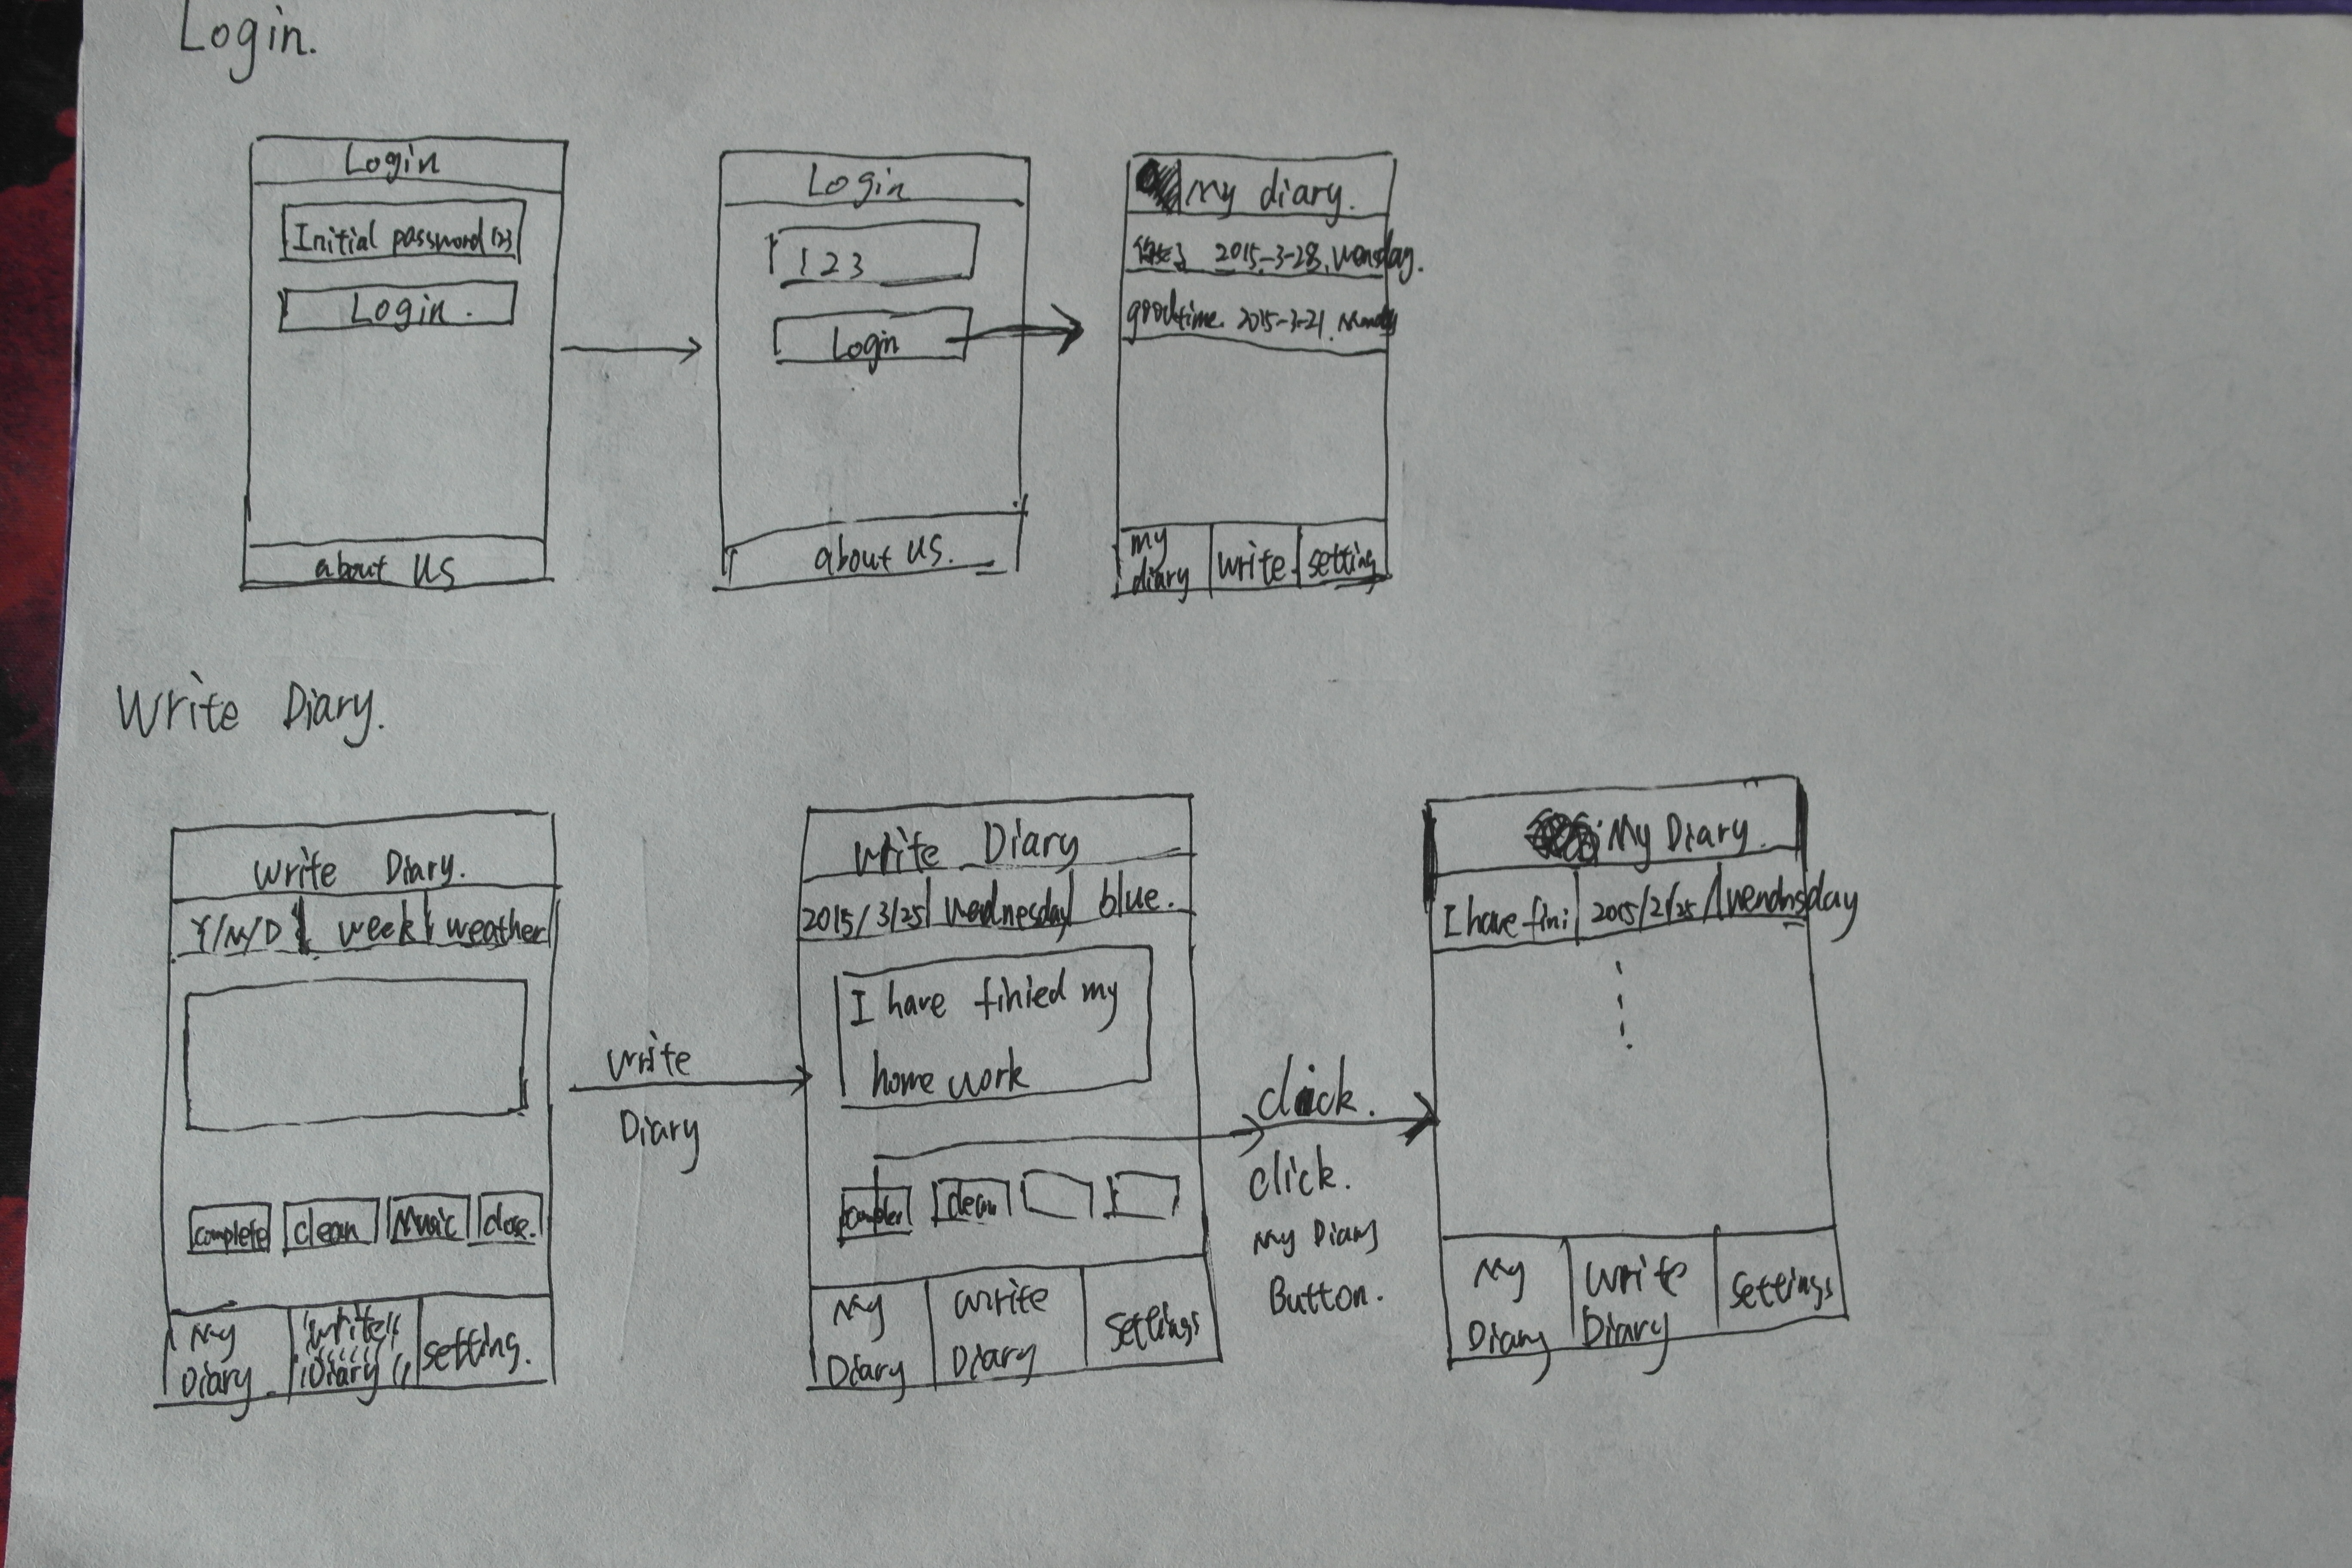 Login.
Login
Initial password 123
Login.
about us
Login
123
Login
about us.
my diary.
2015-3-28. Wensday.
good time. 2015-3-21.
my
diary
write.
setting
Write Diary.
Write Diary.
Y/M/D
week
weather
complete
clean
Music
close.
My
Diary.
Write
Diary
setting.
write
Diary
Write Diary
2015/3/25
Wednesday
blue.
I have finied my
home work
clean
My
Diary
Write
Diary
Settings
click.
click.
My Diary
Button.
My Diary.
I have fini
2015/2/25
My
Diary
Write
Diary
Settings